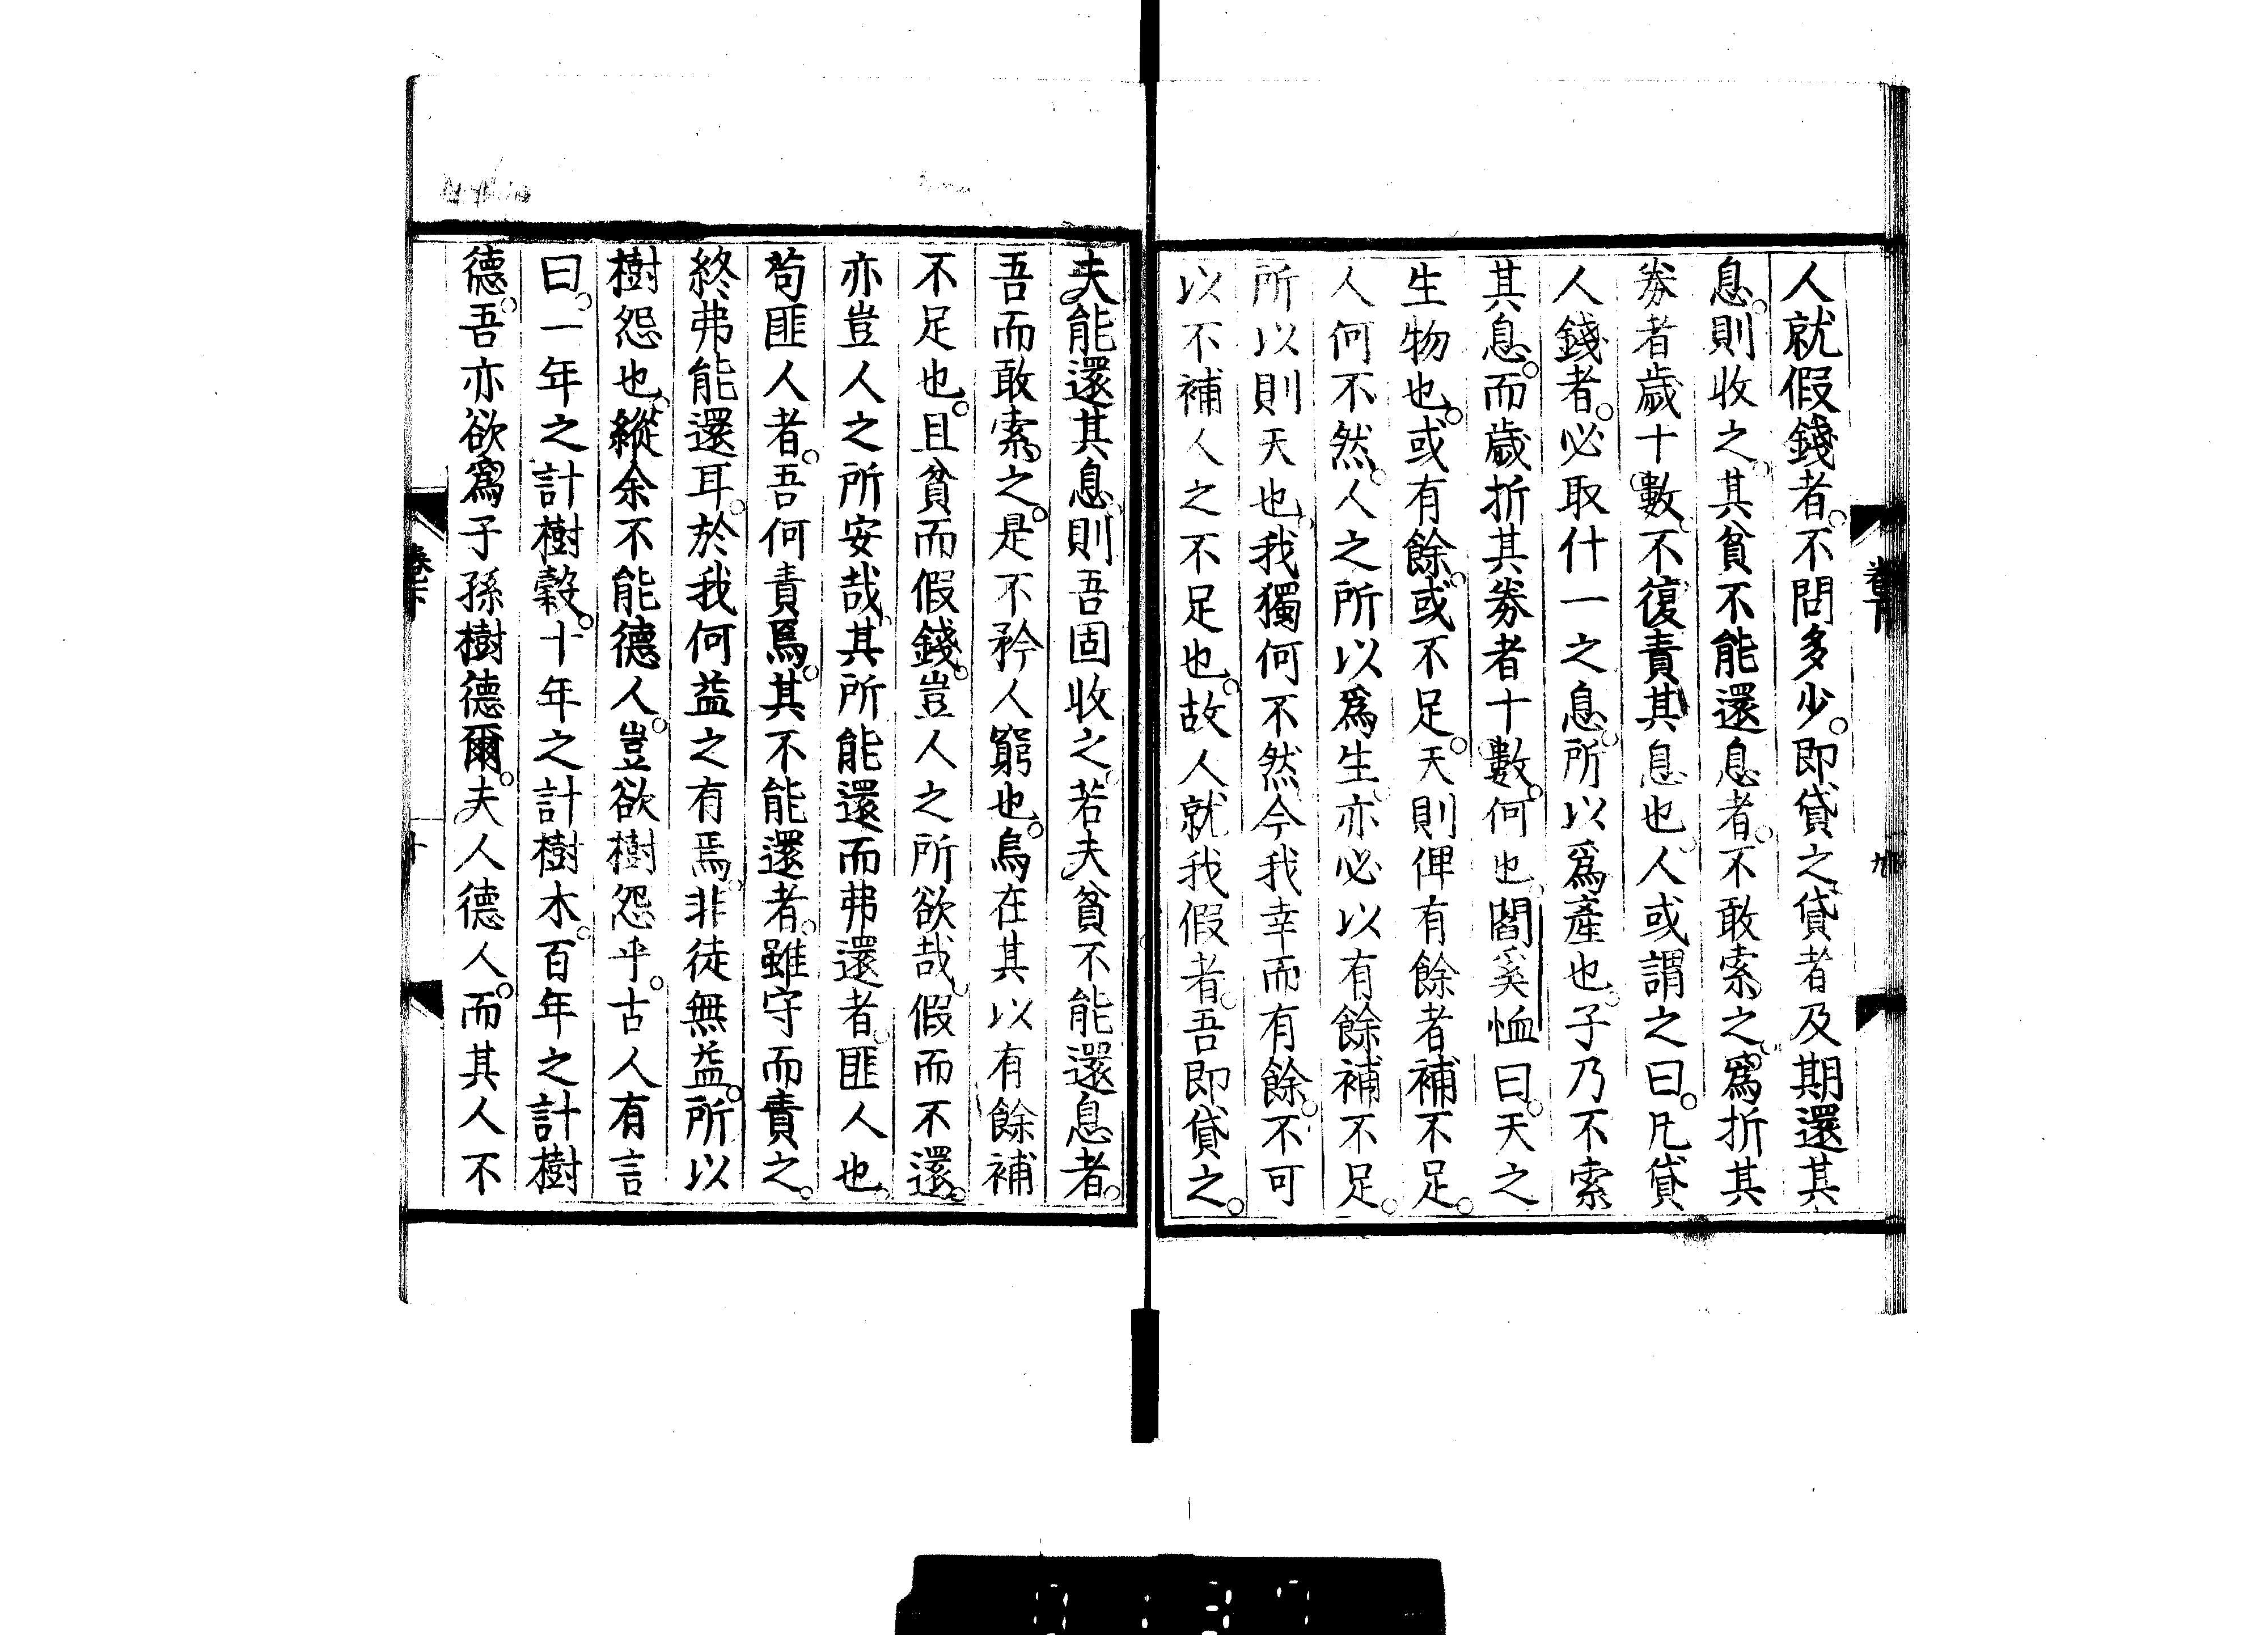 人就假錢者。不問多少。即貸之。貸者及期還其
息。則收之。其貧不能還息者。不敢索之。爲折其
券者歲十數。不復責其息也。人或謂之曰。凡貸
人錢者。必取什一之息。所以爲產也。子乃不索
其息。而歲折其券者十數。何也。閻奚恤曰。天之
生物也。或有餘。或不足。天則俾有餘者補不足。
人何不然。人之所以爲生。亦必以有餘補不足。
所以則天也。我獨何不然。今我幸而有餘。不可
以不補人之不足也。故人就我假者。吾即貸之。
夫能還其息。則吾固收之。若夫貧不能還息者。
吾而敢索之。是不矜人窮也。烏在其以有餘補
不足也。且貧而假錢。豈人之所欲哉。假而不還。
亦豈人之所安哉。其所能還而弗還者。匪人也。
苟匪人者。吾何責焉。其不能還者。雖守而責之。
終弗能還耳。於我何益之有焉。非徒無益。所以
樹怨也。縱余不能德人。豈欲樹怨乎。古人有言
曰。一年之計樹穀。十年之計樹木。百年之計樹
德。吾亦欲爲子孫樹德爾。夫人德人。而其人不